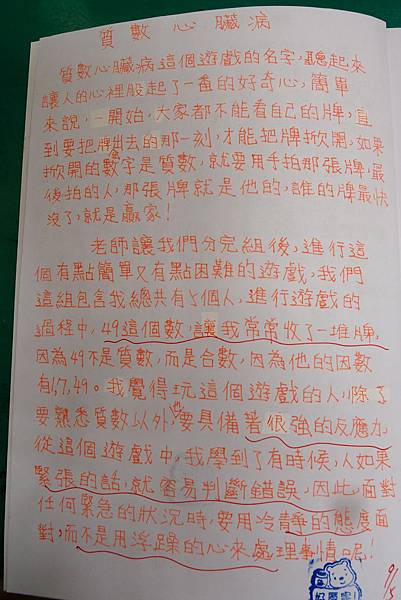 質數心臟病
質數心臟病這個遊戲的名字,聽起來
讓人的心裡股起了一番的好奇心,簡單
來說,一開始,大家都不能看自己的牌,直
到要把牌出去的那一刻,才能把牌掀開,如果
掀開的數字是質數,就要用手拍那張牌,最
後拍的人,那張牌就是他的,誰的牌最快
沒了,就是贏家!
老師讓我們分完組後,進行這
個有點簡單又有點困難的遊戲,我們
這組包含我總共有5個人,進行遊戲的
過程中,49這個數,讓我常常收了一堆牌,
因為49不是質數,而是合數,因為他的因數
有1,7,49。我覺得玩這個遊戲的人,除了
要熟悉質數以外,也要具備著很強的反應力,
從這個遊戲中,我學到了有時候,人如果
緊張的話,就容易判斷錯誤,因此,面對
任何緊急的狀況時,要用冷靜的態度面
對,而不是用浮躁的心來處理事情呢!